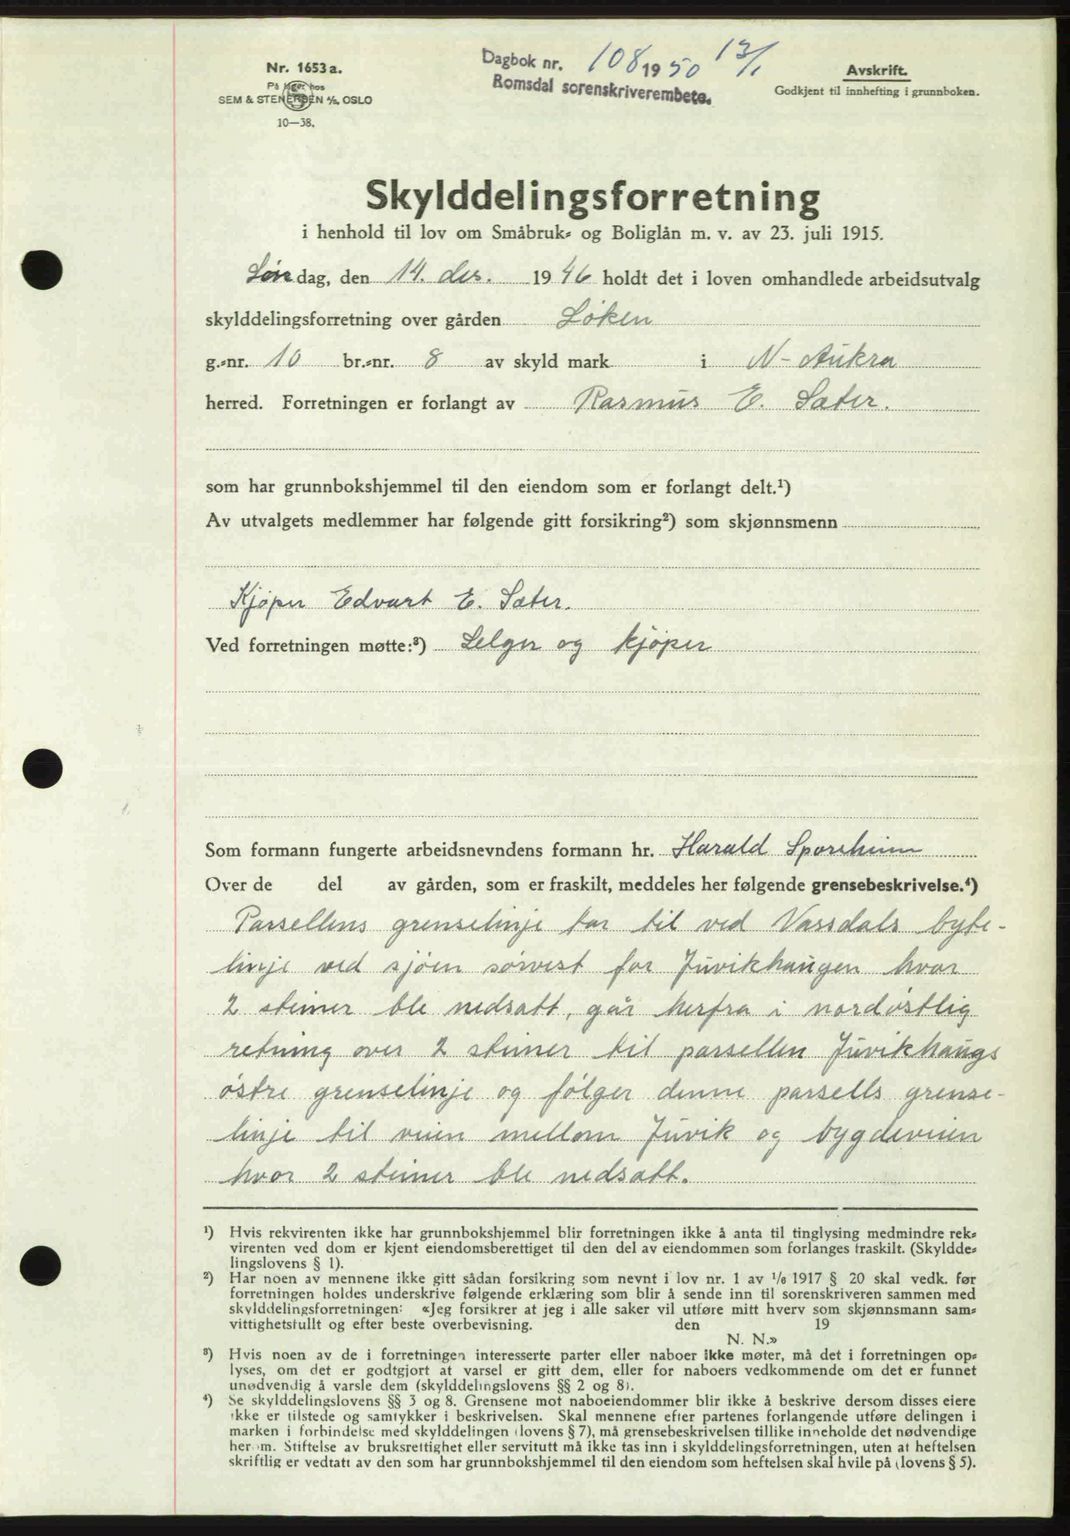 Nr. 1653 a.
På lager hos
SEM & STENERSEN A/S, OSLO
10—38.
Dagbok nr. 108 1950 13/1
Romsdal sorenskriverembete.
Avskrift.
Godkjent til innhefting i grunnboken.
Skylddelingsforretning
i henhold til lov om Småbruk- og Boliglån m. v. av 23. juli 1915.
Lørdag, den 14. des. 1946 holdt det i loven omhandlede arbeidsutvalg
skylddelingsforretning over gården Löken
g.-nr. 10 br.-nr. 8 av skyld mark i N-Aukra
herred. Forretningen er forlangt av Rasmus E. Sæter.
som har grunnbokshjemmel til den eiendom som er forlangt delt.¹)
Av utvalgets medlemmer har følgende gitt forsikring²) som skjønnsmenn
Kjøper Edvart E. Sæter.
Ved forretningen møtte:³) Selger og kjøper
Som formann fungerte arbeidsnevndens formann hr. Harald Sporsheim
Over de del av gården, som er fraskilt, meddeles her følgende grensebeskrivelse.⁴)
Parsellens grenselinje tar til ved Vassdals byte-
linje ved sjöen sörvest for Juvikhaugen hvor
2 steiner ble nedsatt, går herfra i nordöstlig
retning over 2 steiner til parsellen Juvikhaugs
östre grenselinje og fölger denne parsells grense-
linje til veien mellom Juvik og bygdeveien
hvor 2 steiner ble nedsatt.
¹) Hvis rekvirenten ikke har grunnbokshjemmel blir forretningen ikke å anta til tinglysing medmindre rek-
virenten ved dom er kjent eiendomsberettiget til den del av eiendommen som forlanges fraskilt. (Skyldde-
lingslovens § 1).
²) Har noen av mennene ikke gitt sådan forsikring som nevnt i lov nr. 1 av 1/6 1917 § 20 skal vedk. før
forretningen holdes underskrive følgende erklæring som blir å sende inn til sorenskriveren sammen med
skylddelingsforretningen: «Jeg forsikrer at jeg i alle saker vil utføre mitt hverv som skjønnsmann sam-
vittighetsfullt og efter beste overbevisning. den 19
N. N.»
³) Hvis noen av de i forretningen interesserte parter eller naboer ikke møter, må det i forretningen op-
lyses, om det er godtgjort at varsel er gitt dem, eller for naboers vedkommende om det er funnet
unødvendig å varsle dem (skylddelingslovens §§ 2 og 8).
⁴) Se skylddelingslovens §§ 3 og 8. Grensene mot naboeiendommer blir ikke å beskrive dersom disses eiere
ikke er tilstede og samtykker i beskrivelsen. Skal mennene efter partenes forlangende utføre delingen i
marken i forbindelse med skylddelingen (lovens § 7), må grensebeskrivelsen tillike inneholde det nødvendige
herom. Stiftelse av bruksrettighet eller servitutt må ikke tas inn i skylddelingsforretningen, uten at heftelsen
skriftlig er vedtatt av den som har grunnbokshjemmel til den eiendom som heftelsen skal hvile på (lovens § 5).